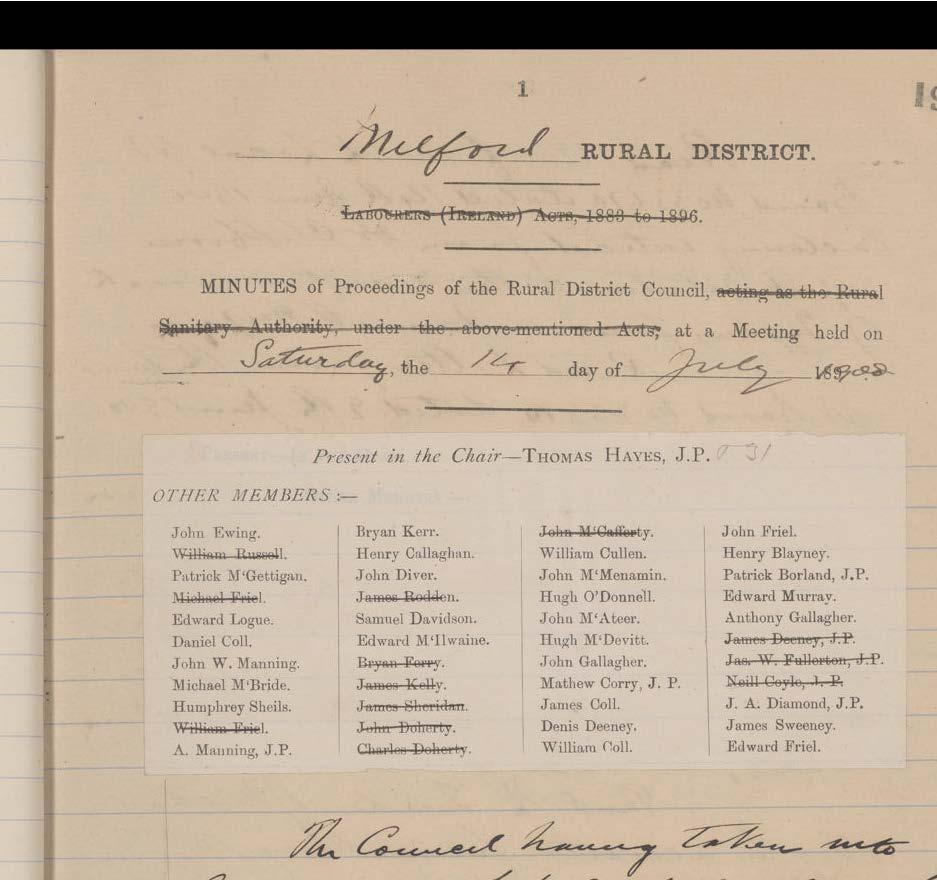 1
19
Milford RURAL DISTRICT.
LABOURERS (IRELAND) ACTS, 1883 to 1896.
MINUTES of Proceedings of the Rural District Council, acting as the Rural
Sanitary Authority, under the above-mentioned Acts, at a Meeting held on
Saturday, the 14 day of July 1900
Present in the Chair—THOMAS HAYES, J.P. 31
OTHER MEMBERS :—
John Ewing.
William Russell.
Patrick M‘Gettigan.
Michael Friel.
Edward Logue.
Daniel Coll.
John W. Manning.
Michael M‘Bride.
Humphrey Sheils.
William Friel.
A. Manning, J.P.
Bryan Kerr.
Henry Callaghan.
John Diver.
James Rodden.
Samuel Davidson.
Edward M‘Ilwaine.
Bryan Ferry.
James Kelly.
James Sheridan.
John Doherty.
Charles Doherty.
John M‘Cafferty.
William Cullen.
John M‘Menamin.
Hugh O’Donnell.
John M‘Ateer.
Hugh M‘Devitt.
John Gallagher.
Mathew Corry, J. P.
James Coll.
Denis Deeney.
William Coll.
John Friel.
Henry Blayney.
Patrick Borland, J.P.
Edward Murray.
Anthony Gallagher.
James Deeney, J.P.
Jas. W. Fullerton, J.P.
Neill Coyle, J. P.
J. A. Diamond, J.P.
James Sweeney.
Edward Friel.
The Council having taken into